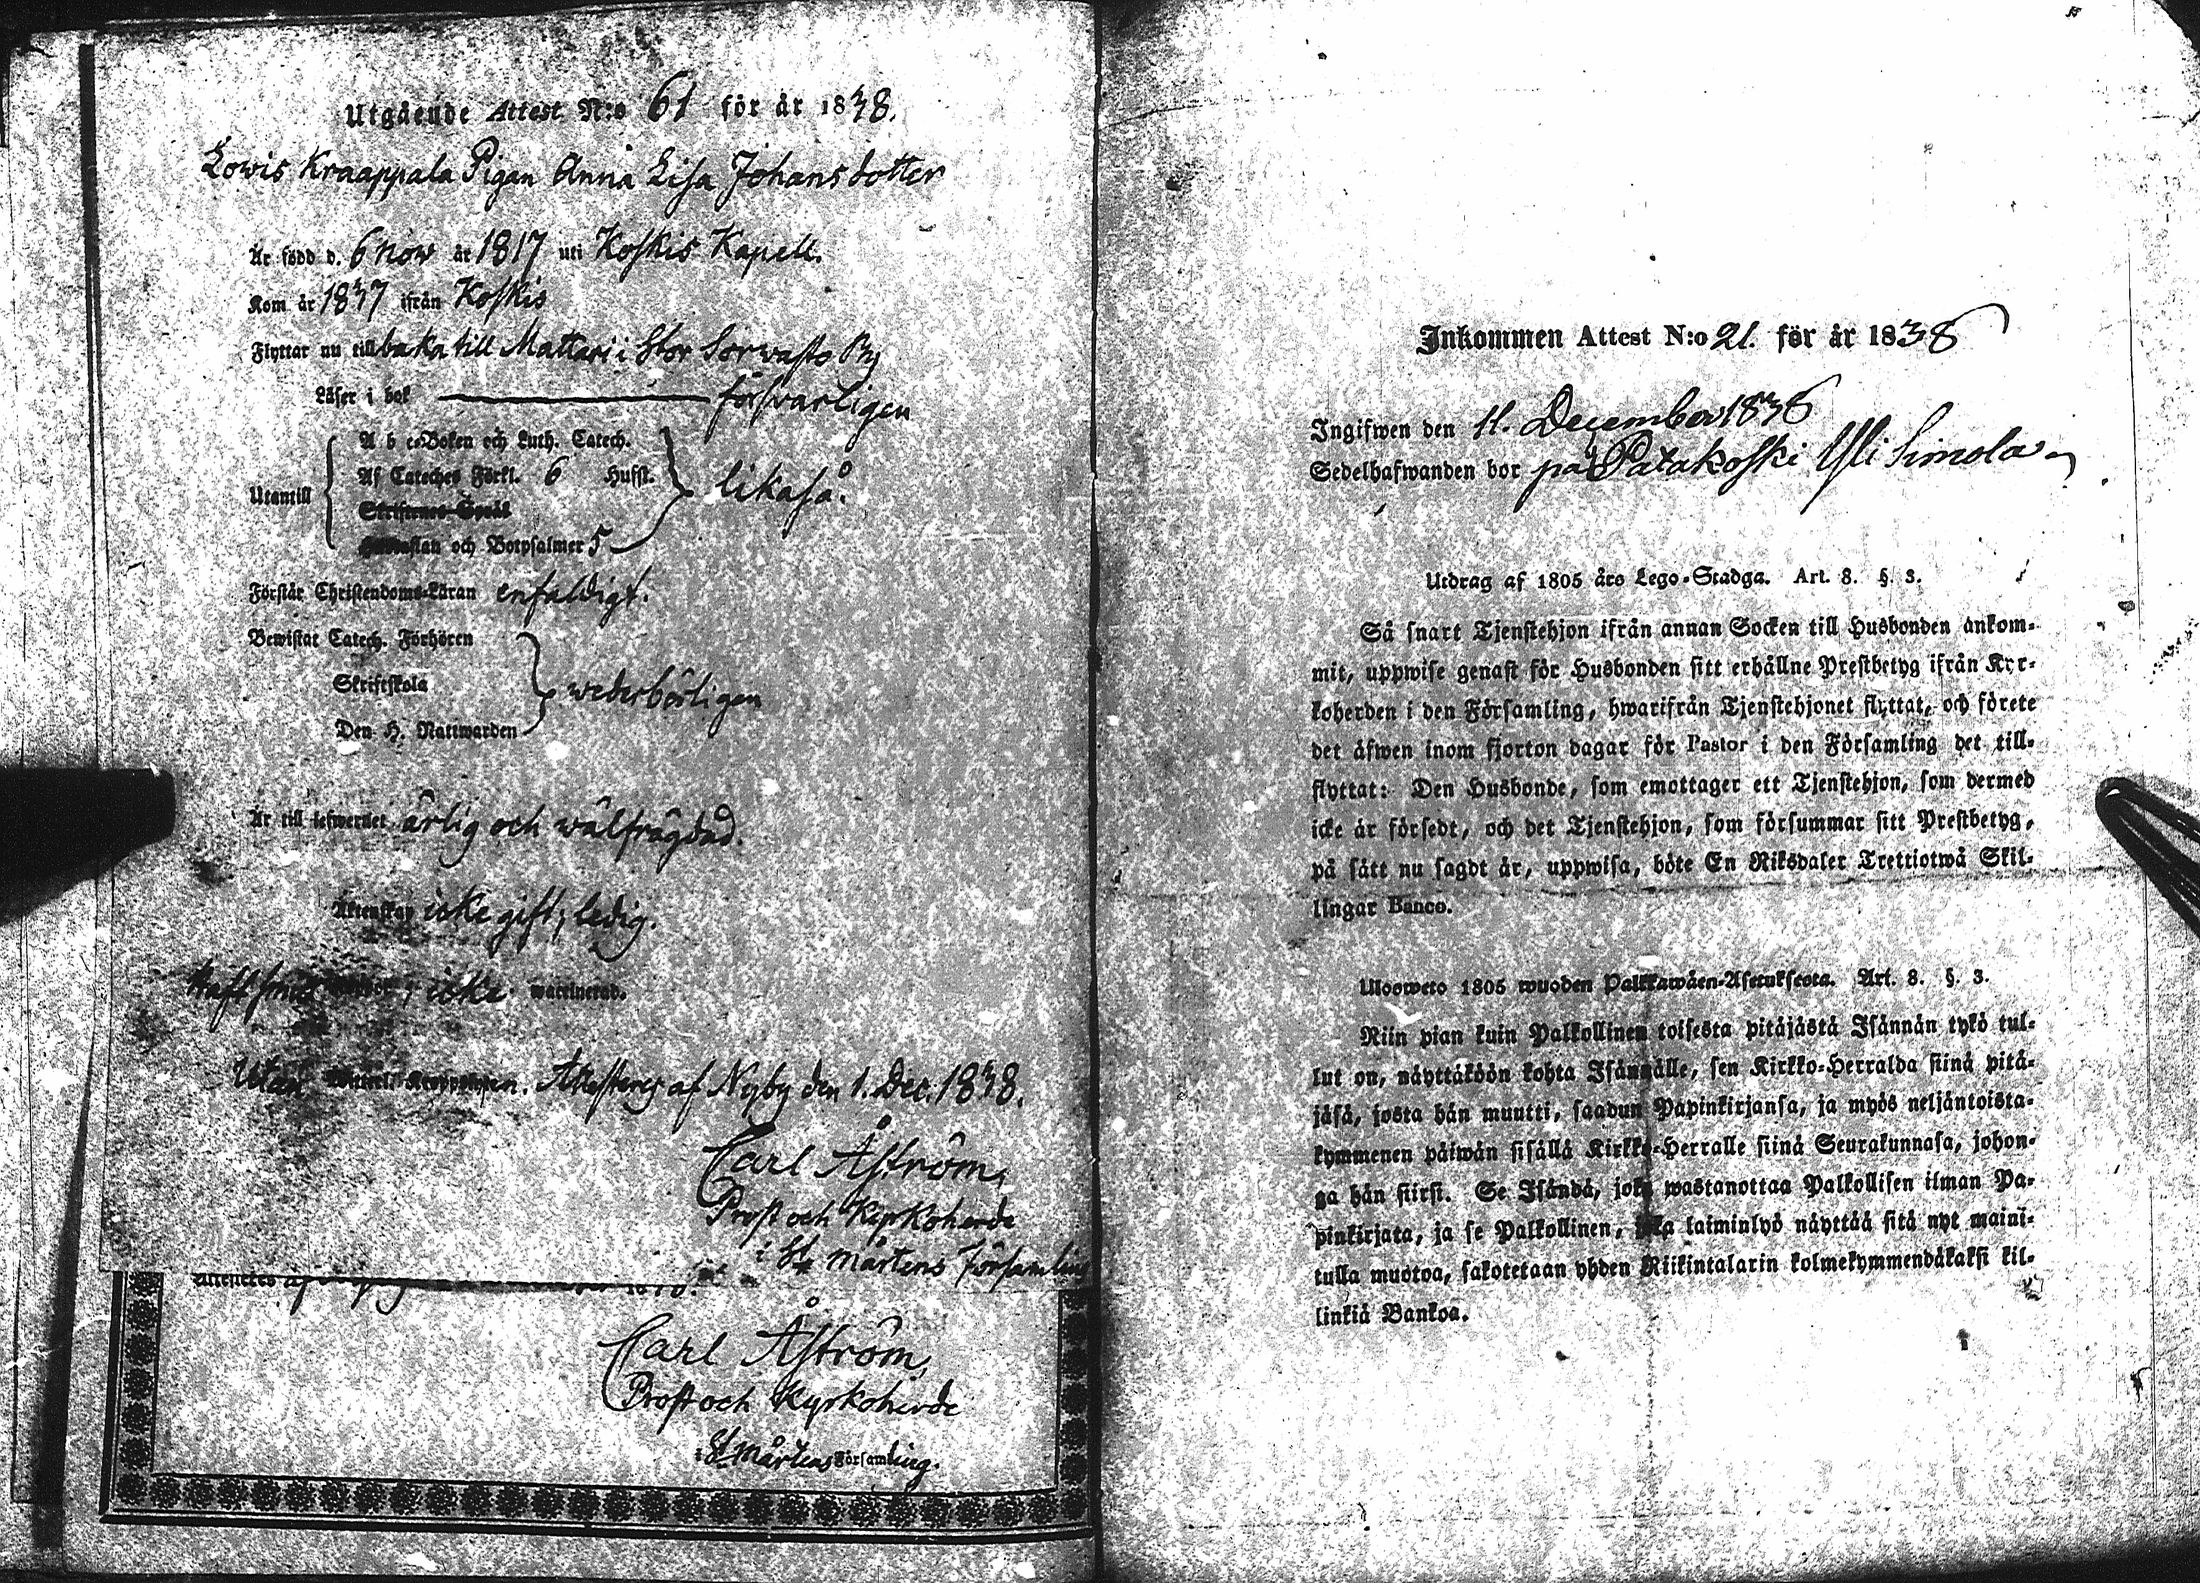 Utgående Attest N:o 61 för år 1838.
Lowis Kraappala Pigan Anna Lisa Johansdotter
Är född d. 6 Nov år 1817 uti Koskis Kapell.
Kom år 1837 ifrån Koskis
Flyttar nu till baka till Mattari i Stor Sorwasto By
Läser i bok försvarligen
A b c-Boken och Luth. Catech.
Af Cateches Förkl. 6 Hufst.
Utantill likaså.
Skriftenes Språk
Hustaflan och Botpsalmer 5
Förstår Christendoms-Läran enfaldigt.
Bewistat Catech. Förhören
Skriftskola wederbörligen
Den H. Nattwarden
Är till lefwernet ärlig och wälfrägdad.
Äktenskap icke gift, ledig.
Haft icke waccinerad.
Utan Attesteras af Nyby den 1. Dec. 1838.
Carl Åström,
Prost och Kyrkoherde
i St Mårtens Församling
Attesteras af
Carl Åström,
Prost och Kyrkoherde
i St Mårtens Församling.
Inkommen Attest N:o 21. för år 1838
Ingifwen den 11. December 1838
Sedelhafwanden bor på Patakoski Yli Simola
Utdrag af 1805 års Lego-Stadga. Art. 8. §. 3.
Så snart Tjenstehjon ifrån annan Socken till Husbonden ankom-
mit, uppwise genast för Husbonden sitt erhållne Prestbetyg ifrån Kyr-
koherden i den Församling, hwarifrån Tjenstehjonet flyttat, och förete
det äfwen inom fjorton dagar för Pastor i den Församling det till-
flyttat: Den Husbonde, som emottager ett Tjenstehjon, som dermed
icke är försedt, och det Tjenstehjon, som försummar sitt Prestbetyg,
på sätt nu sagdt är, uppwisa, böte En Riksdaler Trettiotwå Skil-
lingar Banco.
Ulosweto 1805 wuoden Palkkawäen-Asetuksesta. Art. 8. §. 3.
Niin pian kuin Palkollinen toisesta pitäjästä Isännän tykö tul-
lut on, näyttäköön kohta Isännälle, sen Kirkko-Herralda siinä pitä-
jäsä, josta hän muutti, saadun Papinkirjansa, ja myös neljäntoista-
kymmenen päiwän sisällä Kirkko-Herralle siinä Seurakunnasa, johon-
ga hän siirsi. Se Isändä, joka wastanottaa Palkollisen ilman Pa-
pinkirjata, ja se Palkollinen, joka laiminlyö näyttää sitä nyt maini-
tulla muotoa, sakotetaan yhden Riikintalarin kolmekymmendäkaksi kil-
linkiä Bankoa.